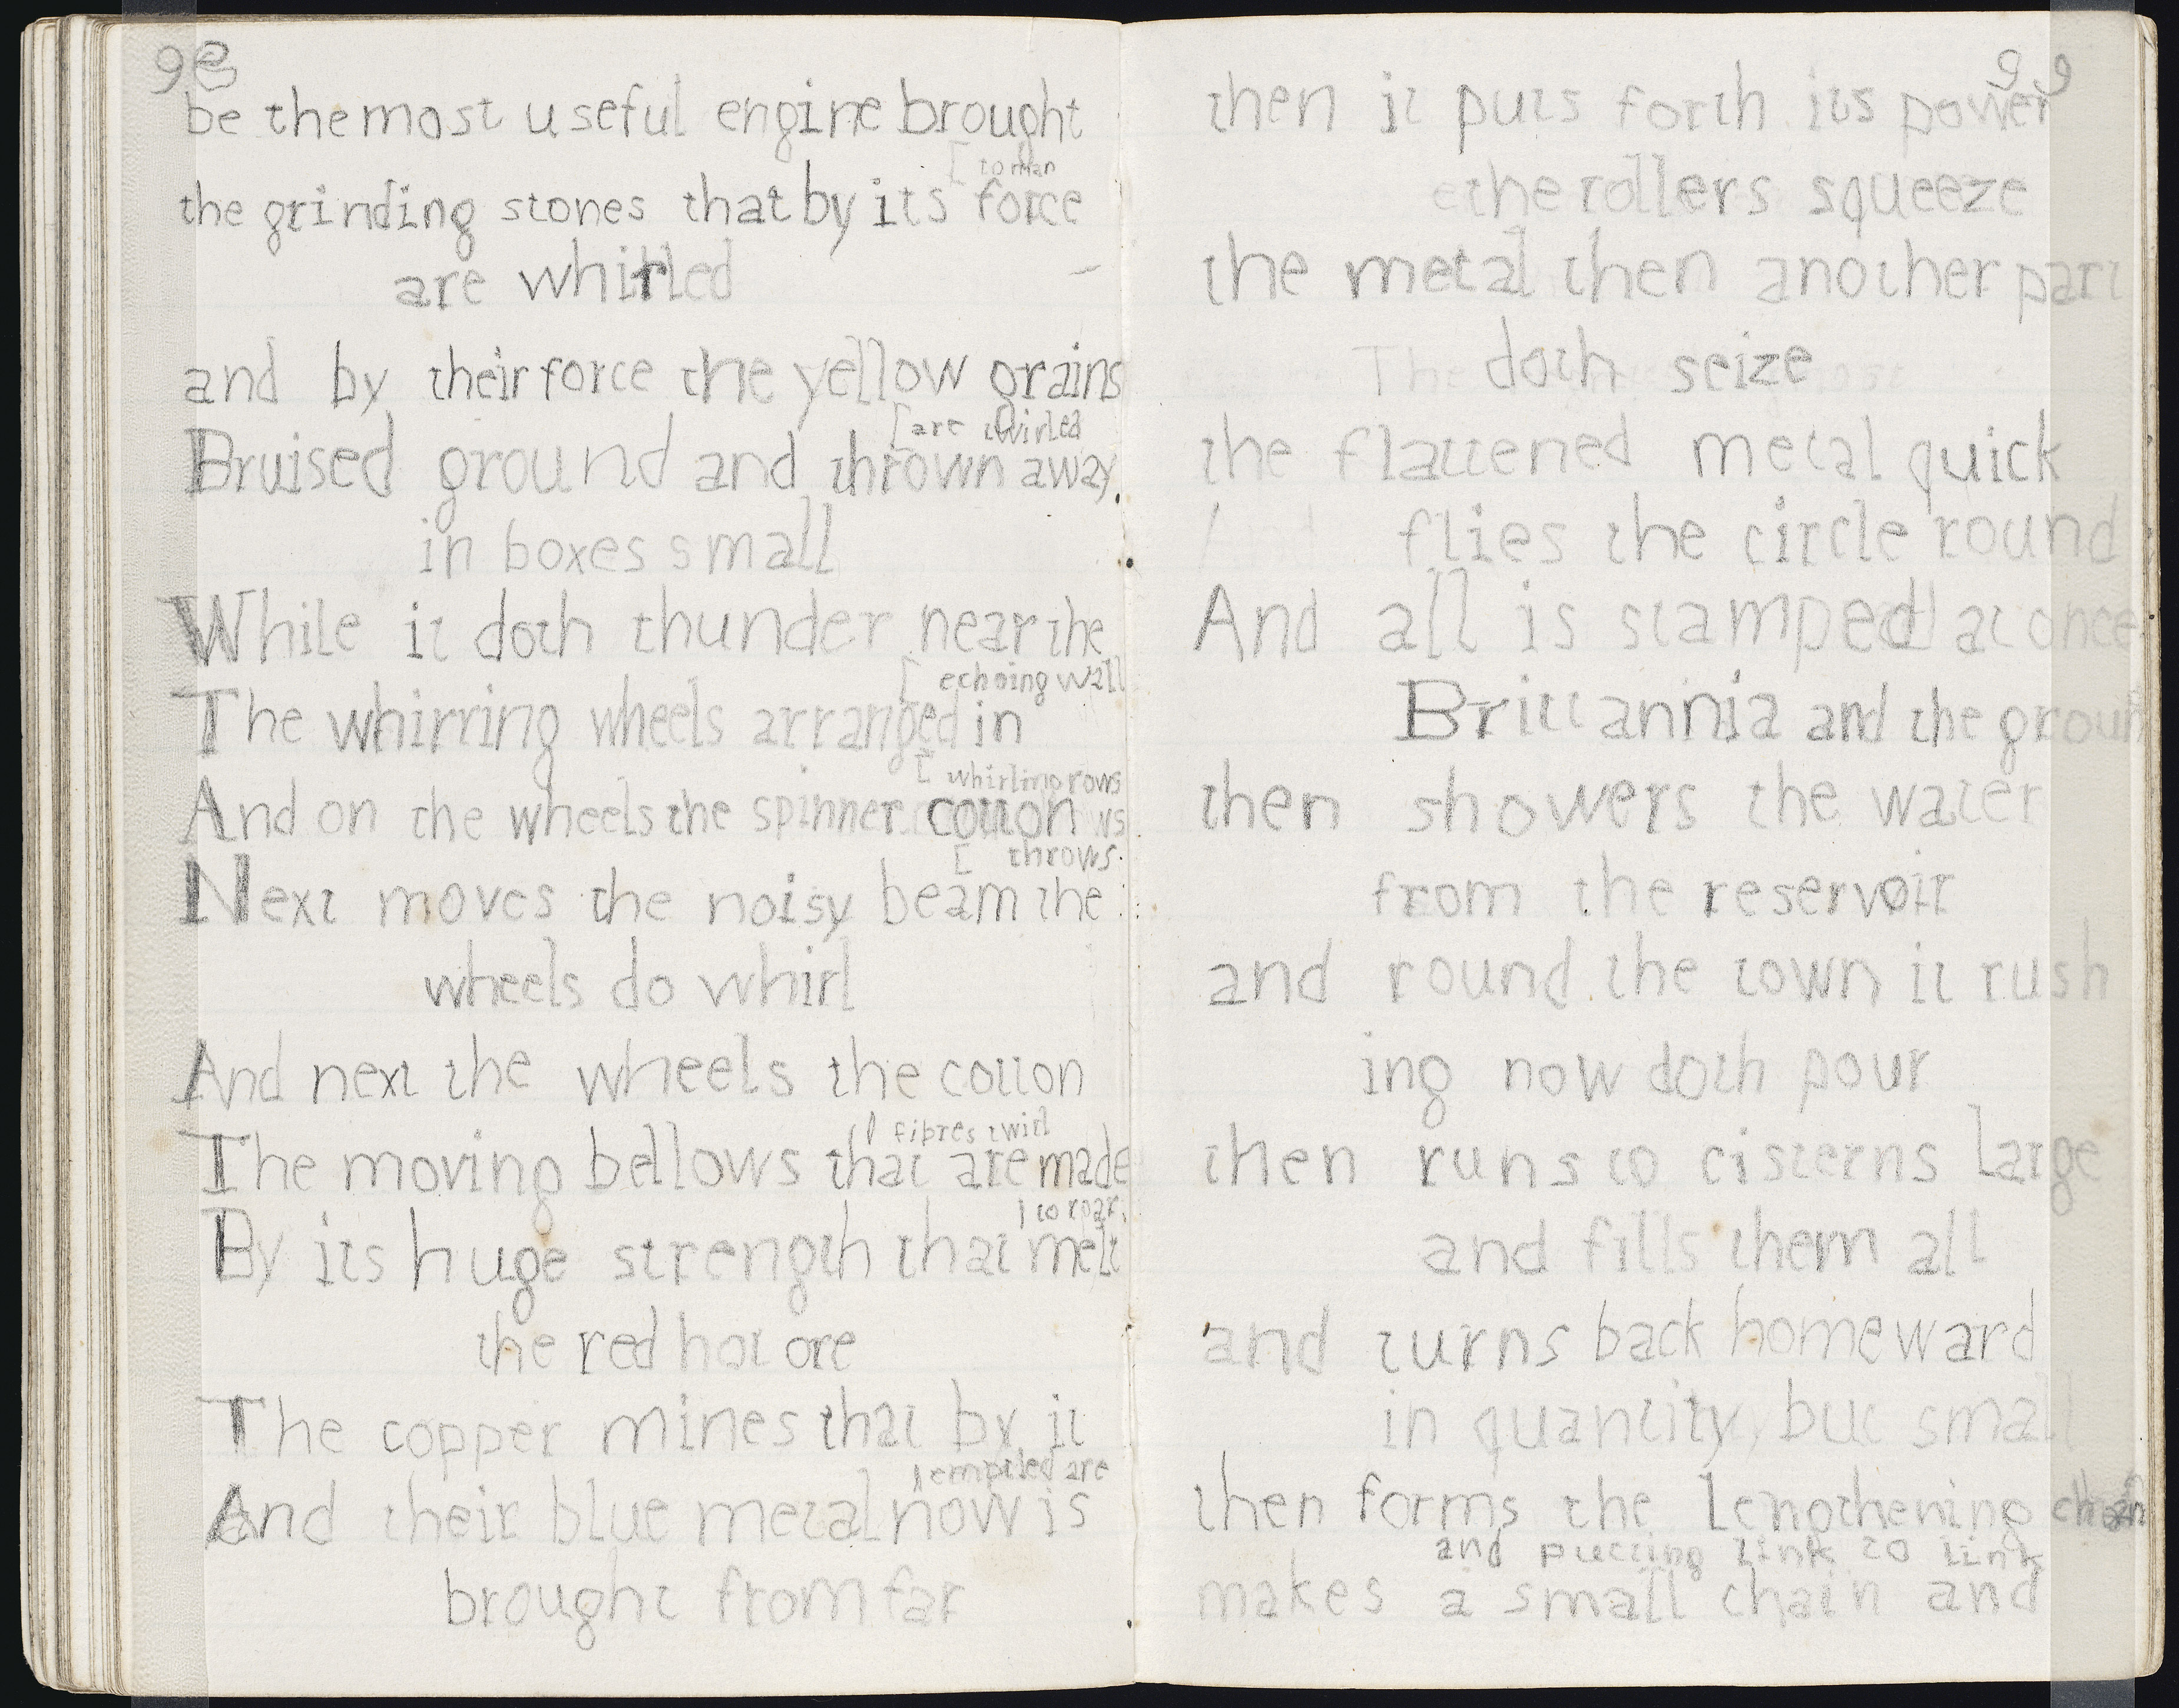 98
be the most useful engine brought
[ to man
the grinding stones that by its force
are whirled
and by their force the yellow grains
[ are twirled
Bruised ground and thrown away
in boxes small
While it doth thunder near the
[ echoing wall
The whirring wheels arranged in
[ whirling rows
And on the wheels the spinner cotton
[ throws.
Next moves the noisy beam the
wheels do whirl
And next the wheels the cotton
[ fibres twirl
The moving bellows that are made
[ to roar
By its huge strength that melt
the red hot ore
The copper mines that by it
[ emptied are
And their blue metal now is
brought from far
99
then it puts forth its power
the rollers squeeze
the metal then another part
doth seize
the flattened metal quick
flies the circle round
And all is stamped at once
Brittannia and the groun
then showers the water
from the reservoir
and round the town it rush
ing now doth pour
then runs to cisterns large
and fills them all
and turns back homeward
in quantity, but small
then forms the lengthening chain
and putting link to link
makes a small chain and